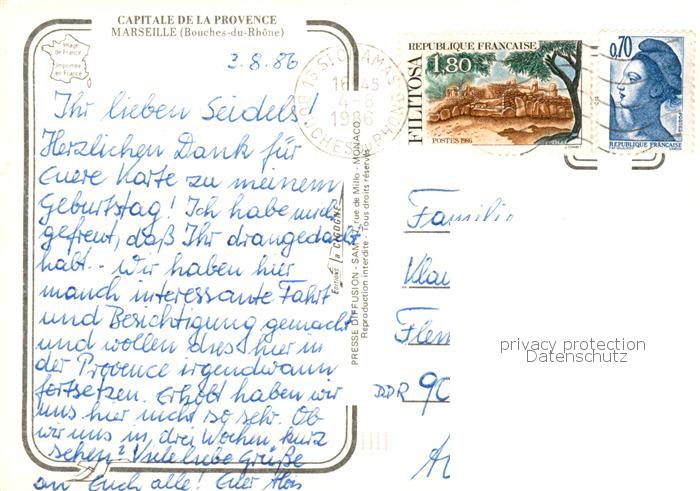 CAPITALE DE LA PROVENCE
MARSEILLE (Bouches-du-Rhône)
Image de France
Imprimée en France
3.8.86
Ihr lieben Seidels!
Herzlichen Dank für
Euere Karte zu meinem
Geburtstag! Ich habe mich
gefreut, daß Ihr drangedacht
habt. - Wir haben hier
manch interessante Fahrt
und Besichtigung gemacht
und wollen dies hier in
der Provence irgendwann
fortsetzen. Erholt haben wir
uns hier nicht so sehr. Ob
wir uns in drei Wochen kurz
sehen? Viele liebe Grüße
an Euch alle! Euer Alois
Editions la CIGOGNE
PRESSE DIFFUSION - SAM rue de Millo - MONACO
Reproduction interdite - Tous droits réservés
13 ST CHAMAS
16-45
4-8
1986
BOUCHES DU RHONE
REPUBLIQUE FRANÇAISE
1,80
FILITOSA
POSTES 1986
0,70
POSTES
REPUBLIQUE FRANÇAISE
Familie
Klau
Flem
DDR 90
privacy protection
Datenschutz